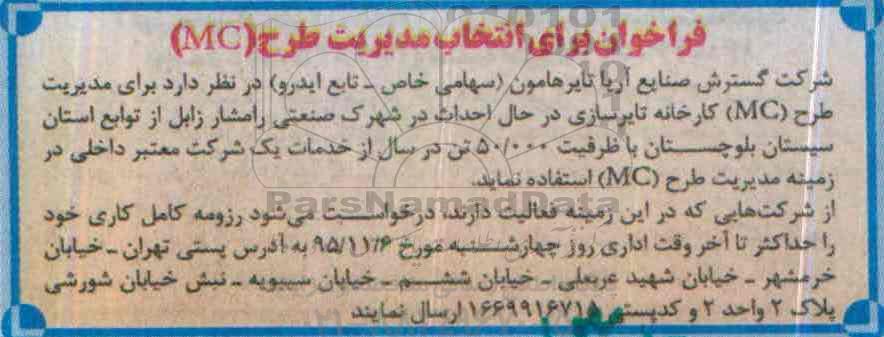 فراخوان برای انتخاب مدیریت طرح (MC)
شرکت گسترش صنایع آریا تایر هامون (سهامی خاص ـ تابع ایدرو) در نظر دارد برای مدیریت
طرح (MC) کارخانه تایرسازی در حال احداث در شهرک صنعتی رامشار زابل از توابع استان
سیستان بلوچستان با ظرفیت ۵۰/۰۰۰ تن در سال از خدمات یک شرکت معتبر داخلی در
زمینه مدیریت طرح (MC) استفاده نماید.
از شرکت‌هایی که در این زمینه فعالیت دارند، درخواست می‌شود رزومه کامل کاری خود
را حداکثر تا آخر وقت اداری روز چهارشنبه مورخ ۹۵/۱۱/۶ به آدرس پستی تهران ـ خیابان
خرمشهر ـ خیابان شهید عربعلی ـ خیابان ششم ـ خیابان سیبویه ـ نبش خیابان شورشی
پلاک ۲ واحد ۲ و کدپستی ۱۶۶۹۹۱۶۷۱۵ ارسال نمایند.
ParsNamadData